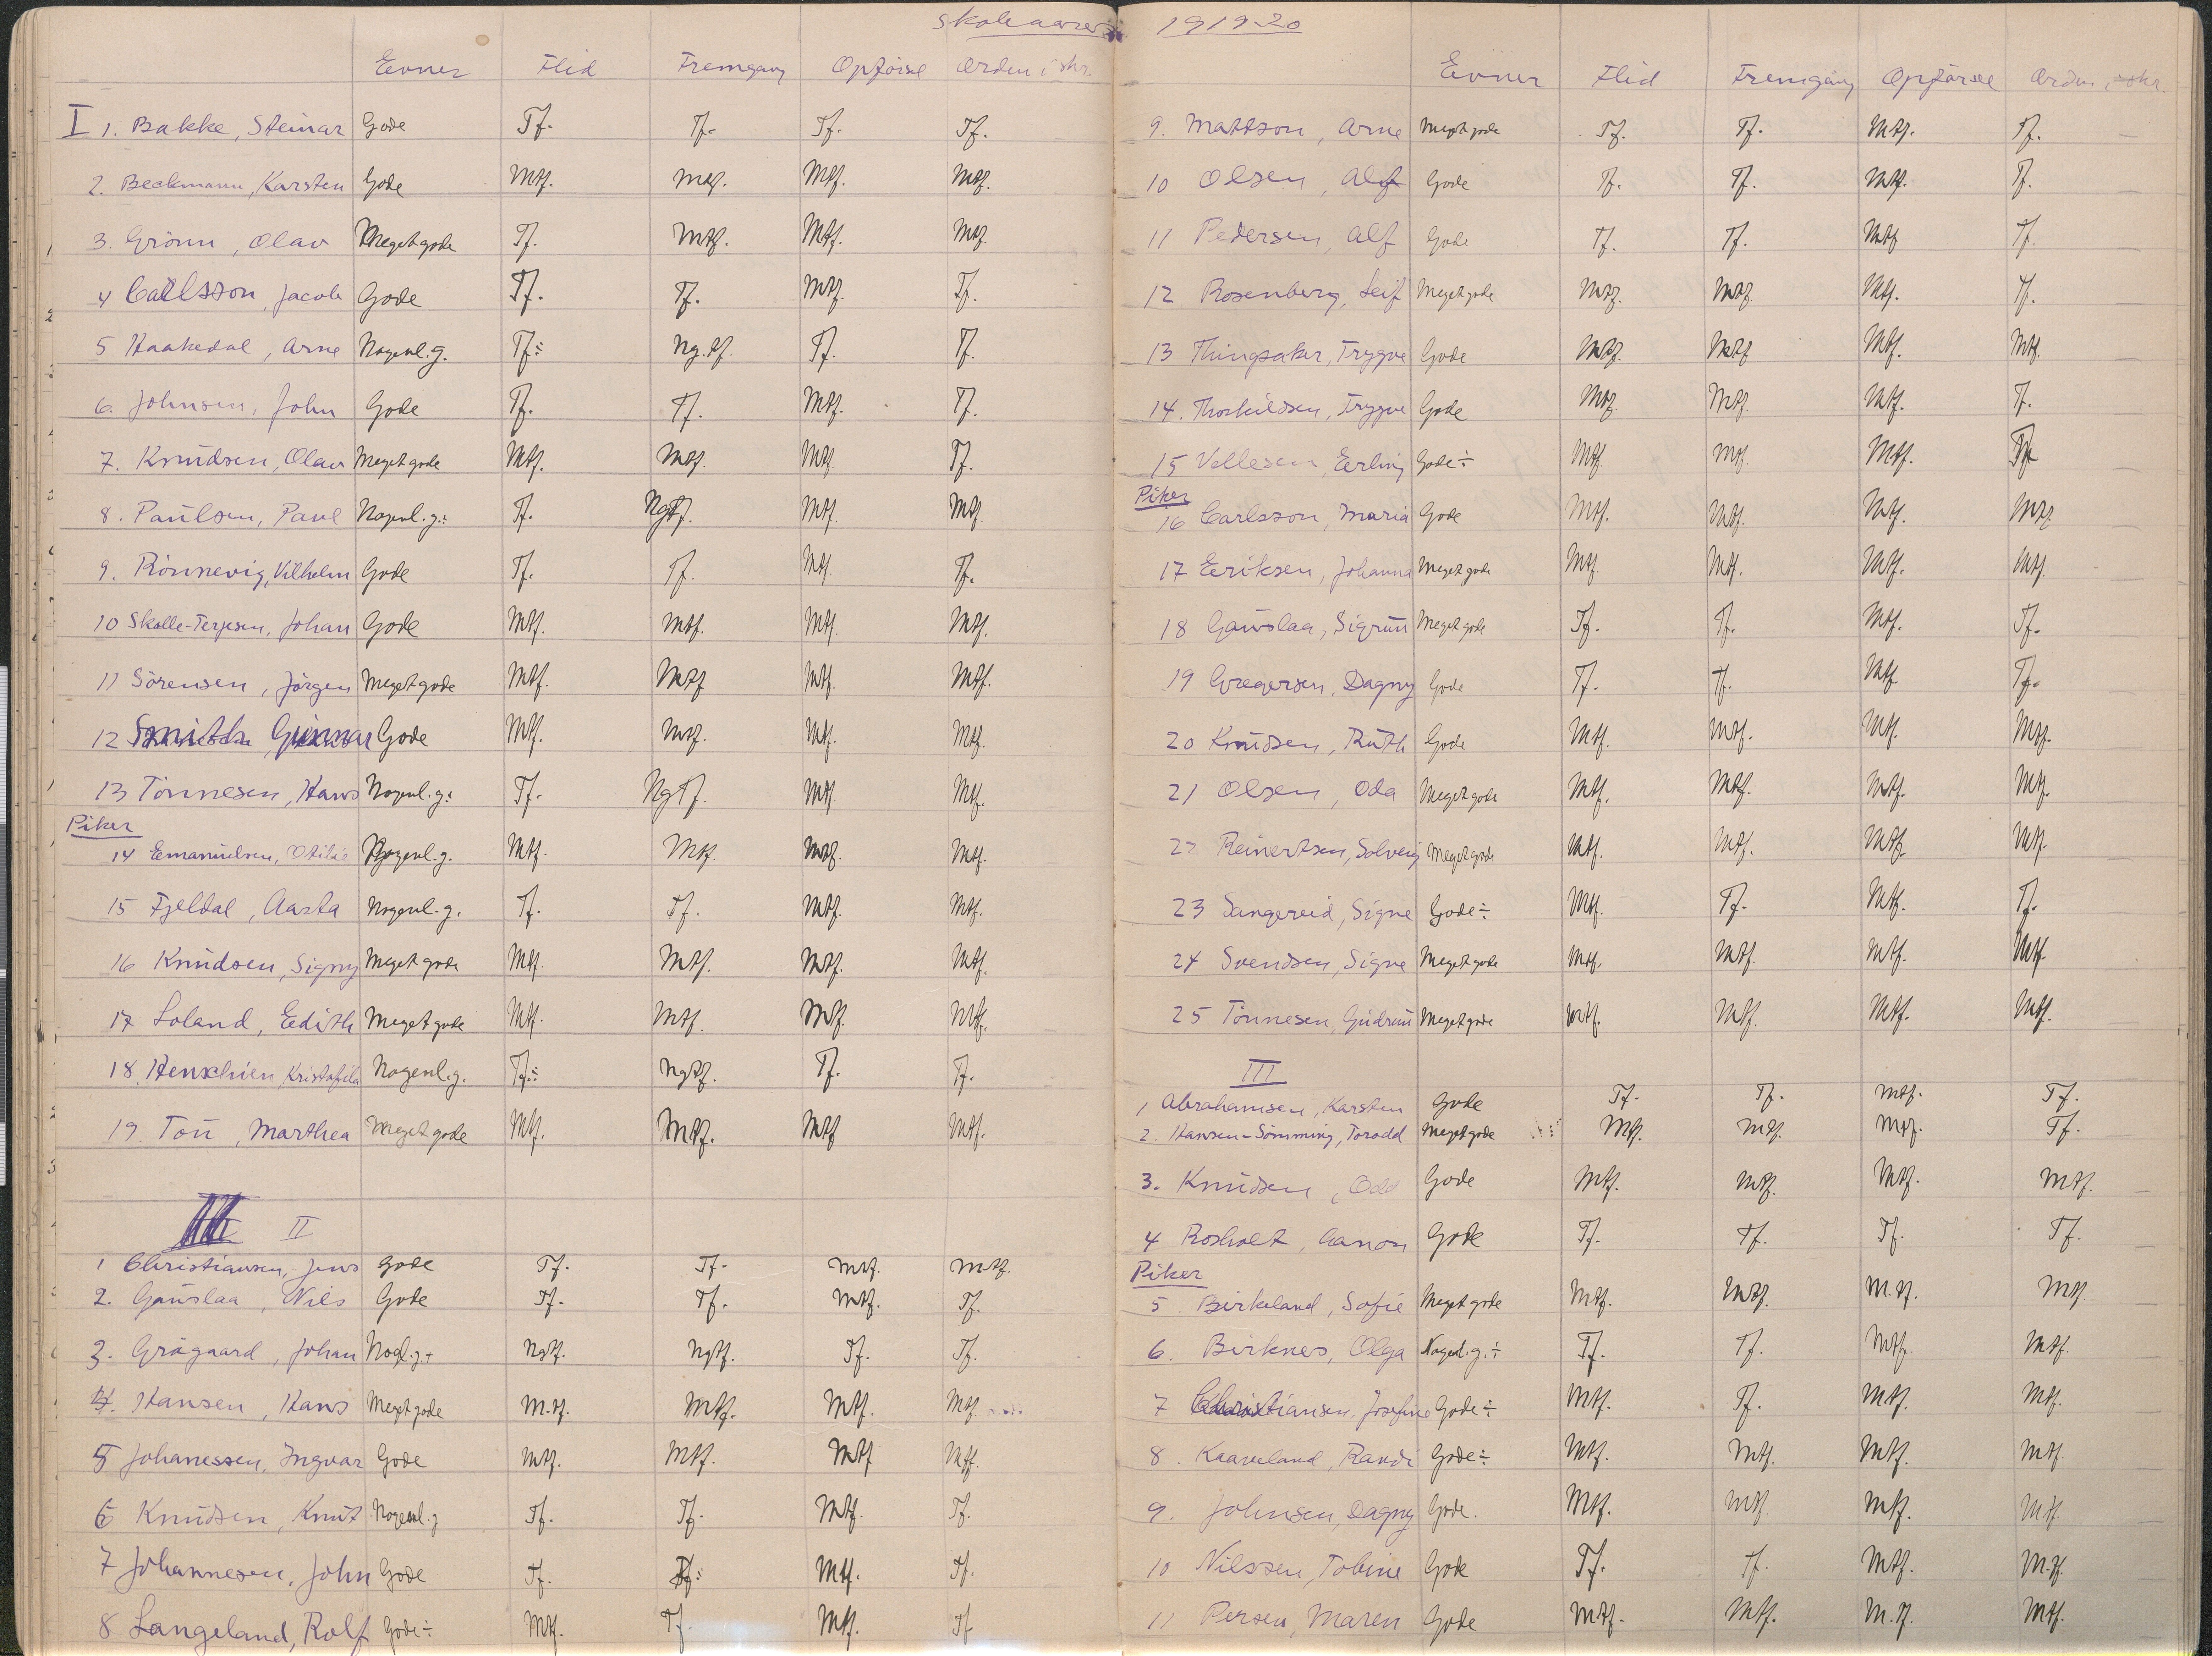 Skoleaaret 1919-20
Evner Flid Fremgang Opførsel Orden i skr.
I 1. Bakke, Steinar Gode Tf. Tf. Tf. Tf.
2. Beckmann, Karsten Gode Mtf. Mtf. Mtf. Mtf.
3. Grönn, Olav Meget gode Tf. Mtf. Mtf. Mtf.
4 Carlsson, Jacob Gode Tf. Tf. Mtf. Tf.
5 Haakedal, Arne Nogenl. g. Tf÷ Ng. tf. Tf. Tf.
6. Johnsen, John Gode Tf. Tf. Mtf. Tf.
7. Knudsen, Olav Meget gode Mtf. Mtf. Mtf. Tf.
8. Paulsen, Paul Nogenl. g.÷ Tf. Ngtf. Mtf. Mtf.
9. Rönnevig, Vilhelm Gode Tf. Tf. Mtf. Tf.
10 Skolle-Terjesen, Johan Gode Mtf. Mtf. Mtf. Mtf.
11 Sörensen, Jörgen Meget gode Mtf. Mtf. Mtf. Mtf.
12 Smith Gunnar Gode Mtf. Mtf. Mtf. Mtf.
13 Tönnesen, Hans Nogenl. g. Tf. NgTf. Mtf. Mtf.
Piker
14 Emanuelsen, Otilie Nogenl. g. Mtf. Mtf. Mtf. Mtf.
15 Fjeldal, Aasta Nogenl. g. Tf. Tf. Mtf. Mtf.
16 Knudsen, Signy Meget gode Mtf. Mtf. Mtf. Mtf.
17 Loland, Edith Meget gode Mtf. Mtf. Mtf. Mtf.
18. Henschien, Kristofila Nogenl. g. Tf.÷ Ngtf. Tf. Tf.
19. Tou, Marthea Meget gode Mtf. Mtf. Mtf Mtf.
II
1 Christiansen, Jens Gode Tf. Tf. Mtf. Mtf.
2. Gauslaa, Nils Gode Tf. Tf. Mtf. Tf.
3. Grågaard, Johan Nogl. g. + Ngtf. Ngtf. Tf. Tf.
4. Hansen, Hans Meget gode M.tf. Mtf. Mtf. Mtf.
5 Johanessen, Ingvar Gode Mtf. Mtf. Mtf Mtf.
6 Knudsen, Knut Nogenl. g Tf. Tf. Mtf. Tf.
7 Johannesen, John Gode Tf. Tf÷ Mtf. Tf.
8 Langeland, Rolf Gode÷ Mtf. Tf. Mtf. Tf
Evner Flid Fremgang Opførsel Orden i skr.
9. Mattson, Arne Meget gode Tf. Tf. Mtf. Tf.
10 Olsen, Alf Gode Tf. Tf. Mtf. Tf.
11 Pedersen, Alf Gode Tf. Tf. Mtf Tf.
12 Rosenberg, Leif Meget gode Mtf. Mtf. Mtf. Tf.
13 Thingsaker, Trygve Gode Mtf. Mtf Mtf. Mtf.
14. Thorkildsen, Trygve Gode Mtf. Mtf. Mtf. Tf.
15 Vollesen, Erling Gode÷ Mtf. Mtf. Mtf. Tf
Piker
16 Carlsson, Maria Gode Mtf. Mtf. Mtf. Mtf
17 Eriksen, Johanna Meget gode Mtf. Mtf. Mtf. Mtf.
18 Gauslaa, Sigrun Meget gode Tf. Tf. Mtf. Tf.
19 Gregersen, Dagny Gode Tf. Tf. Mtf. Tf.
20 Knudsen, Ruth Gode Mtf. Mtf. Mtf. Mtf.
21 Olsen, Oda Meget gode Mtf. Mtf. Mtf. Mtf.
22. Reinertsen, Solveig Meget gode Mtf. Mtf. Mtf. Mtf.
23 Sangereid, Signe Gode÷ Mtf. Tf. Mtf. Tf.
24 Svendsen, Signe Meget gode Mtf. Mtf. Mtf. Mtf.
25 Tönnesen, Gudrun Meget gode Mtf. Mtf. Mtf. Mtf.
III
1 Abrahamsen, Karsten Gode Tf. Tf. Mtf. Tf.
2. Hansen-Sömming, Torodd Meget gode Mtf. Mtf. Mtf. Tf.
3. Knudsen, Odd Gode Mtf. Mtf. Mtf. Mtf.
4 Rosholt, Aanon Gode Tf. Tf. Tf. Tf.
Piker
5. Birkeland, Sofie Meget gode Mtf. Mtf. M.tf. Mtf.
6. Birknes, Olga Nogenl. g.÷ Tf. Tf. Mtf. Mtf.
7 Christiansen, Josefine Gode÷ Mtf. Tf. Mtf. Mtf.
8. Kaaveland, Randi Gode÷ Mtf. Mtf. Mtf. Mtf.
9. Johnsen, Dagny Gode. Mtf. Mtf. Mtf. Mtf.
10 Nilssen, Tobine Gode Tf. Tf. Mtf. M.tf.
11 Persen, Maren Gode Mtf. Mtf. M.tf. Mtf.